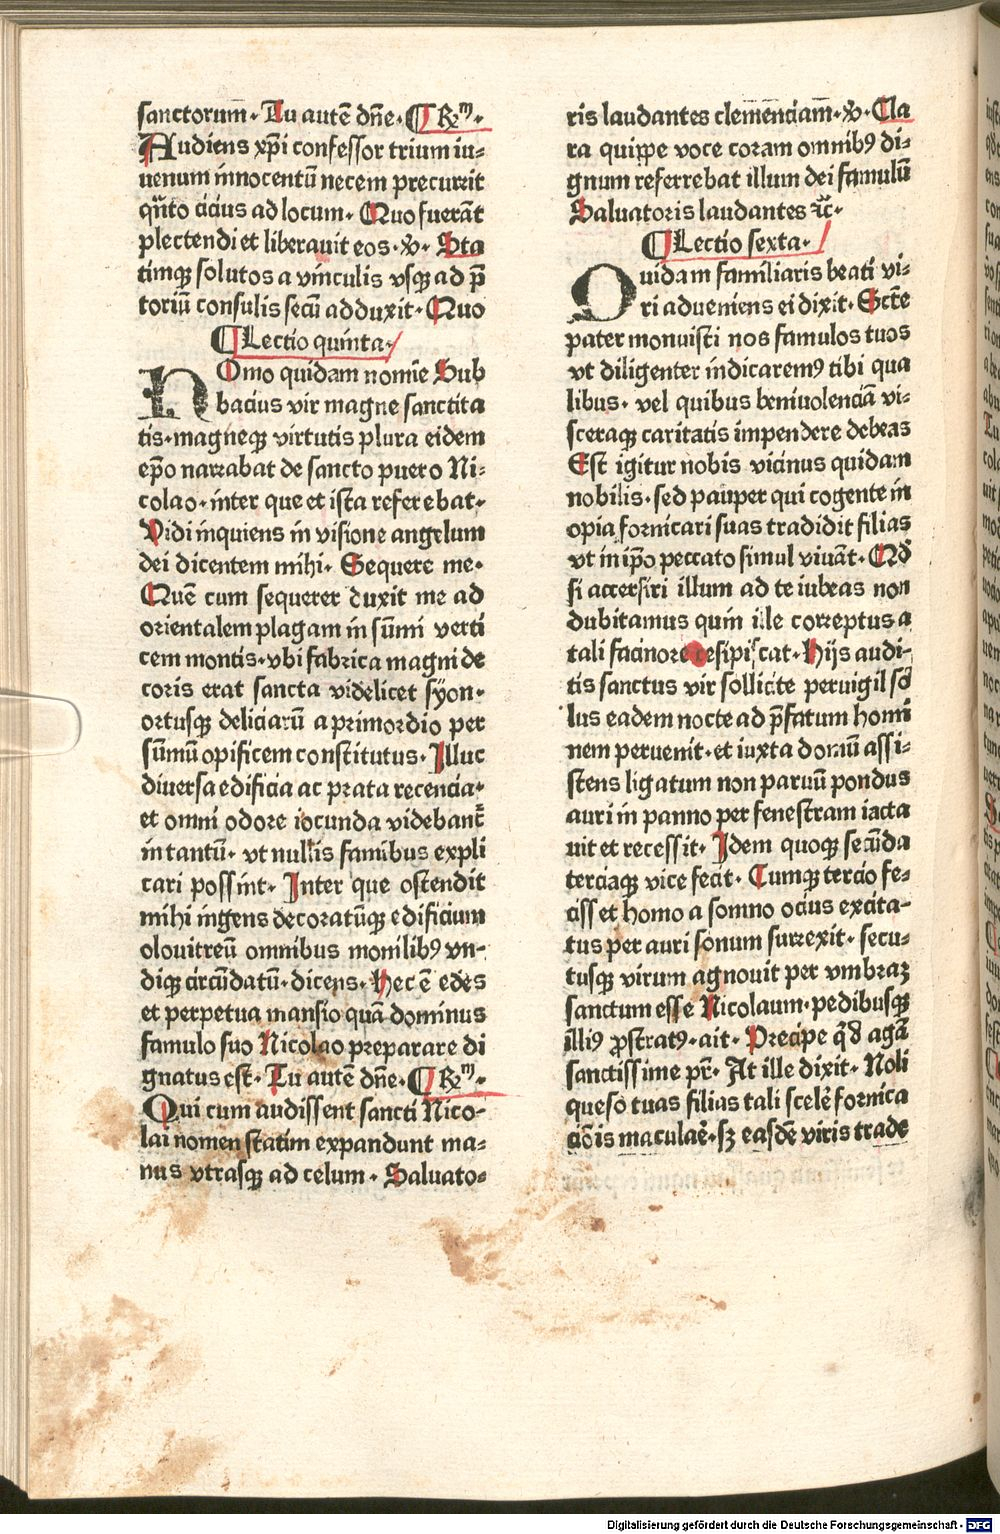 sanctorum. Tu autē dn̄e. ¶ R⁊m̄.
Audiens xp̄i confessor trium iu⸗
uenum innocentū necem precurrit
qn̄to cicius ad locum. Quo fuerāt
plectendi et liberauit eos. ℣. Sta
timqꝫ solutos a vinculis vsqꝫ ad p̄
toriū consulis secū adduxit. Quo
¶ Lectio quinta.
NOmo quidam nomīe Sub
bacius vir magne sanctita
tis. magneqꝫ virtutis plura eidem
ep̄o narrabat de sancto puero Ni⸗
colao. inter que et ista referebat.
Vidi inquiens in visione angelum
dei dicentem mihi. Sequere me.
Quē cum sequerer duxit me ad
orientalem plagam in sūmi verti
cem montis. vbi fabrica magni de
coris erat sancta videlicet syon.
ortusqꝫ deliciarū a primordio per
sūmū opificem constitutus. Illuc
diuersa edificia ac prata recencia.
et omni odore iocunda videbant̄
in tantū. vt nullis famibus expli
cari possint. Inter que ostendit
mihi ingens decoratūqꝫ edificium
olouitreū omnibus monilibꝰ vn⸗
diqꝫ circūdatū. dicens. Hec ē edes
et perpetua mansio quā dominus
famulo suo Nicolao preparare di
gnatus est. Tu autē dn̄e. ¶ R⁊m̄.
Qui cum audissent sancti Nico⸗
lai nomen statim expandunt ma⸗
nus vtrasqꝫ ad celum. Saluato⸗
ris laudantes clemenciam̄. ℣. Cla
ra quippe voce coram omnibꝰ di⸗
gnum referrebat illum dei famulū
Saluatoris laudantes ⁊c̄.
¶ Lectio sexta.
Quidam familiaris beati vi⸗
ri adueniens ei dixit. Sct̄e
pater monuisti nos famulos tuos
vt diligenter indicaremꝰ tibi qua
libus. vel quibus beniuolenciā vi⸗
sceraqꝫ caritatis impendere debeas
Est igitur nobis vicinus quidam
nobilis. sed pauper qui cogente in
opia fornicari suas tradidit filias
vt in ip̄o peccato simul viuāt. Qd̄
si accersiri illum ad te iubeas non
dubitamus quin ille correptus a
tali facinore resipiscat. Hijs audi⸗
tis sanctus vir sollicite peruigil so
lus eadem nocte ad p̄fatum homi
nem peruenit. et iuxta domū assi⸗
stens ligatum non paruū pondus
auri in panno per fenestram iacta
uit et recessit. Idem quoqꝫ secūda
terciaqꝫ vice fecit. Cumqꝫ tercio fe⸗
ciss et homo a somno ocius excita⸗
tus per auri sonum surrexit. secu⸗
tusqꝫ virum agnouit per vmbraꝫ
sanctum esse Nicolaum. pedibusqꝫ
illiꝰ ꝓstratꝰ. ait. Precipe qd̄ agā
sanctissime pr̄. At ille dixit. Noli
queso tuas filias tali sceler̄ fornica
cōis maculaē. sꝫ easdē viris trade
Digitalisierung gefördert durch die Deutsche Forschungsgemeinschaft - DFG